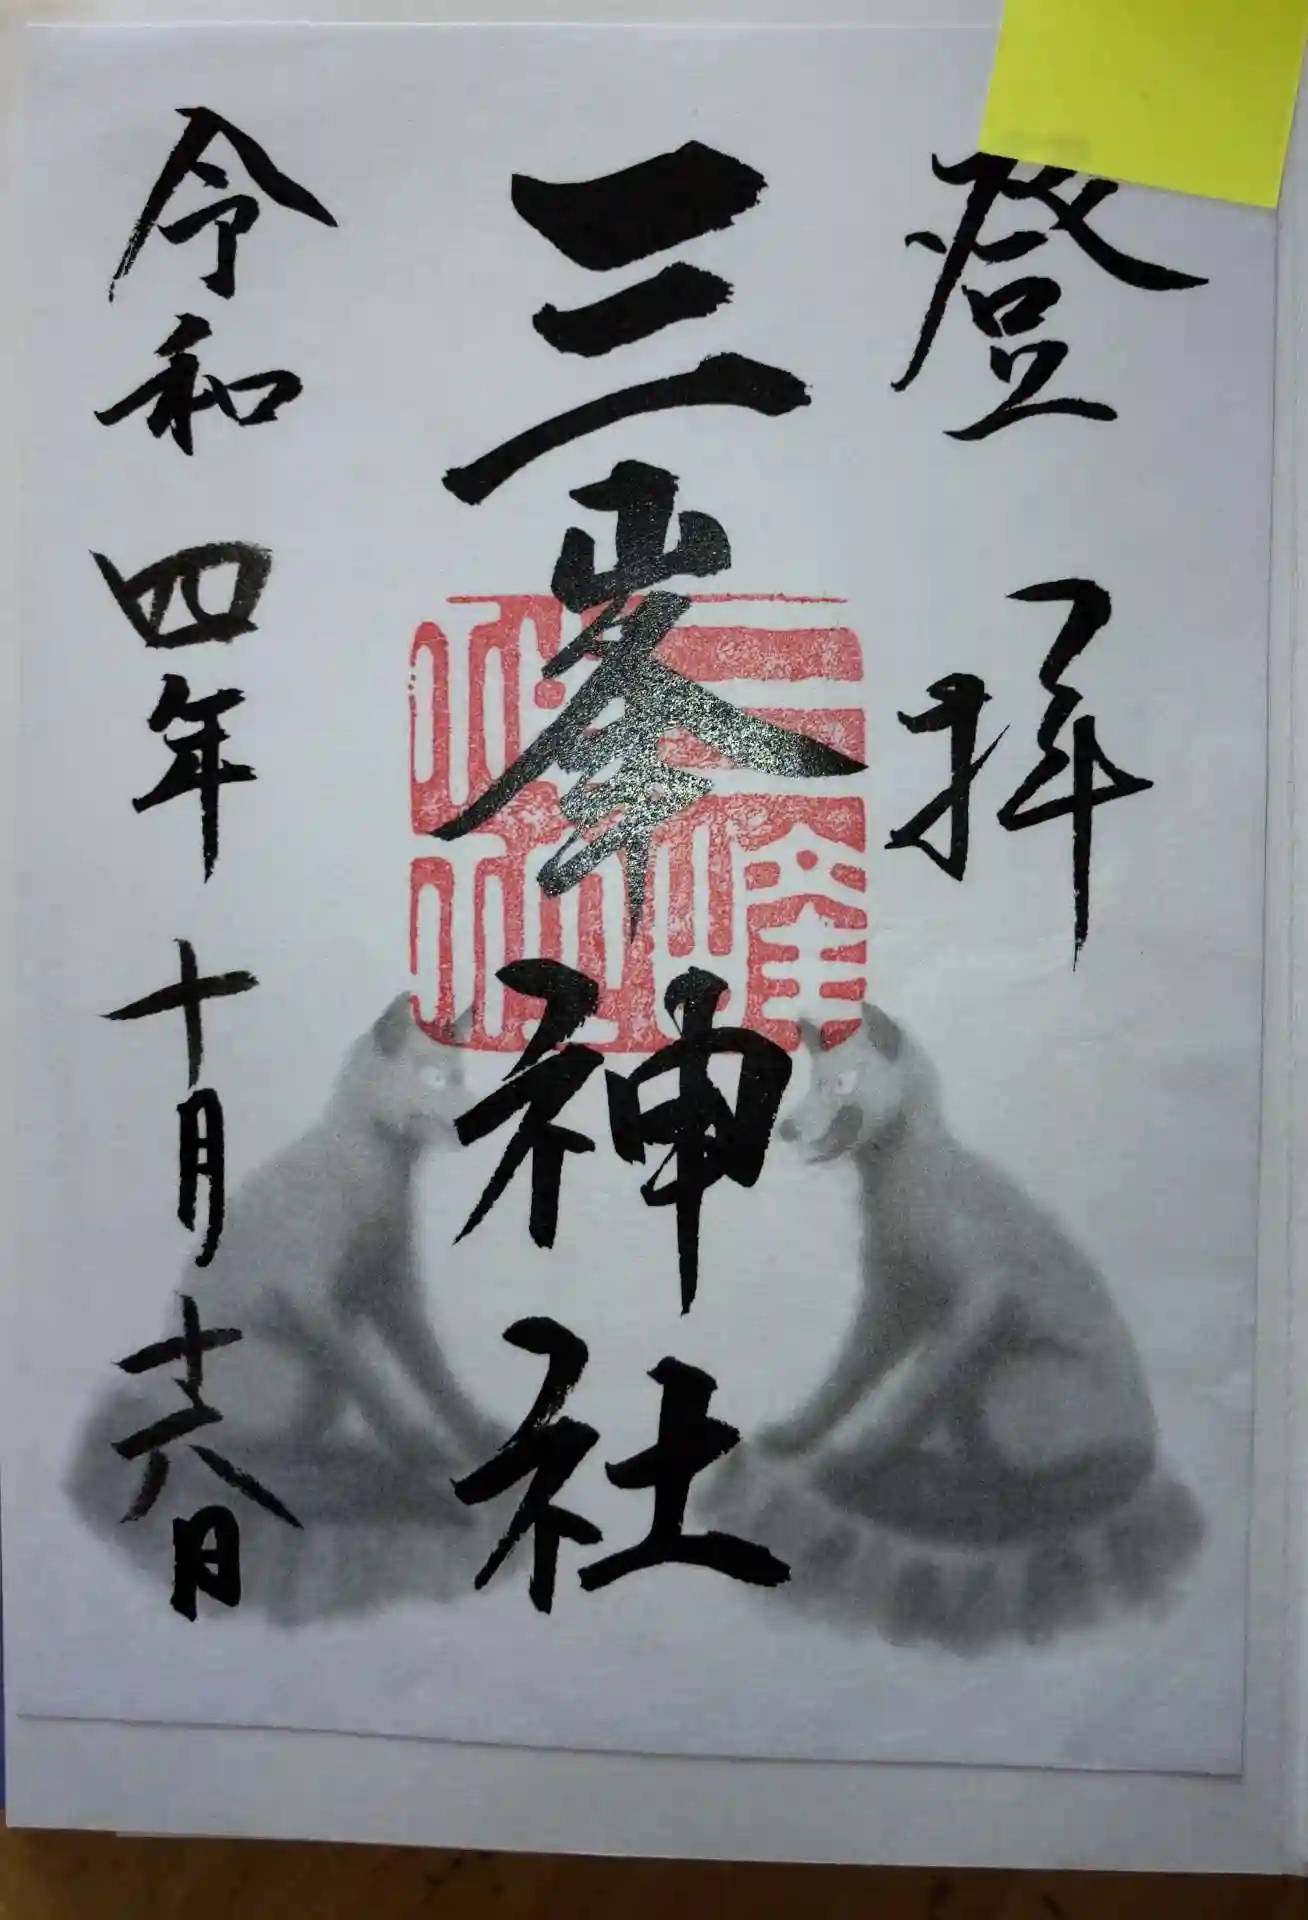 登拝
三峯神社
三峰神社
令和四年十月十六日